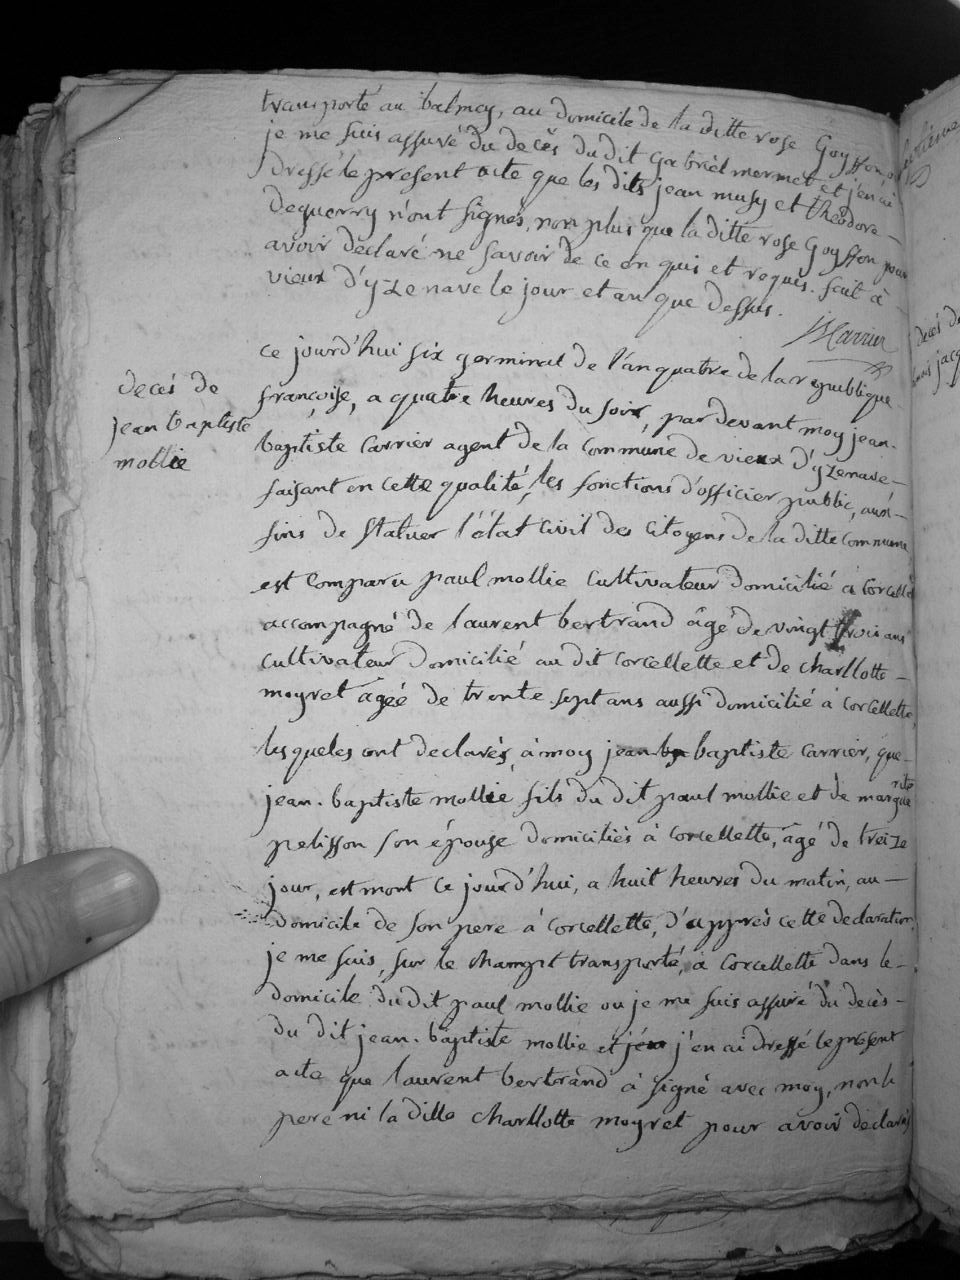 transporté au balmey, au domicile de la ditte rose Goyffon, ou
je me suis assuré du decès du dit gabriel mermet et j'en ai
dressé le present acte que les dits jean musy et théodore
deguerry n'ont signés, non plus que la ditte rose Goyffon pour
avoir déclaré ne savoir de ce en quis et requis. fait à
vieux d'yzenave le jour et an que dessus.
JBCarrier
decés de
jean baptiste
mollie
ce jourd'hui six germinal de l'an quatre de la republique
françoise, a quatre heures du soir, par devant moy jean-
baptiste Carrier agent de la commune de vieux d'yzenave
faisant en cette qualité, les fonctions d'officier public, aux
fins de statuer l'état civil des citoyens de la ditte commune
est comparu paul mollie cultivateur domicilié à corcellette
accompagné de laurent bertrand âgé de vingt trois ans
cultivateur domicilié au dit corcellette et de charllotte
moyret âgéé de trente sept ans aussi domicilié à corcellette,
lesqueles ont declarés, à moy jean baptiste carrier, que
jean-baptiste mollie fils du dit paul mollie et de marguerite
pelisson son épouse domiciliés à corcellette, âgé de treize
jour, est mont ce jourd'hui, a huit heures du matin, au
domicile de son pere à corcellette, d'apprès cette declaration,
je me suis, sur le champt transporté, à corcellette dans le
domicile du dit paul mollie ou je me suis assuré du decès
du dit jean-baptiste mollie et j'en ai dressé le présent
acte que laurent bertrand à signé avec moy, non le
pere ni la ditte charllotte moyret pour avoir declarés
decès de
jacq